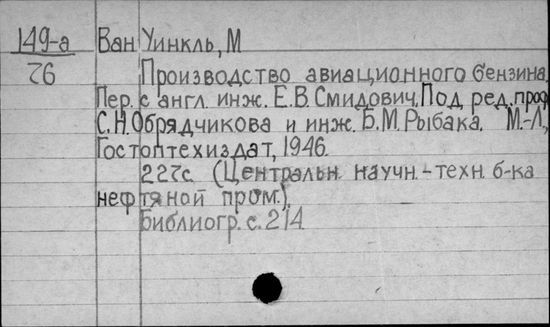 149-а Ван Уинкль, М
26 Производство авиационного бензина.
Пер. с англ. инж. Е.В. Смидович. Под ред. проф.
С.Н. Обрядчикова и инж. Б.М. Рыбака. М.-Л.,
Гостоптехиздат, 1946.
227с. (Центральн. научн.-техн. б-ка
нефтяной пром.).
Библиогр. с. 214